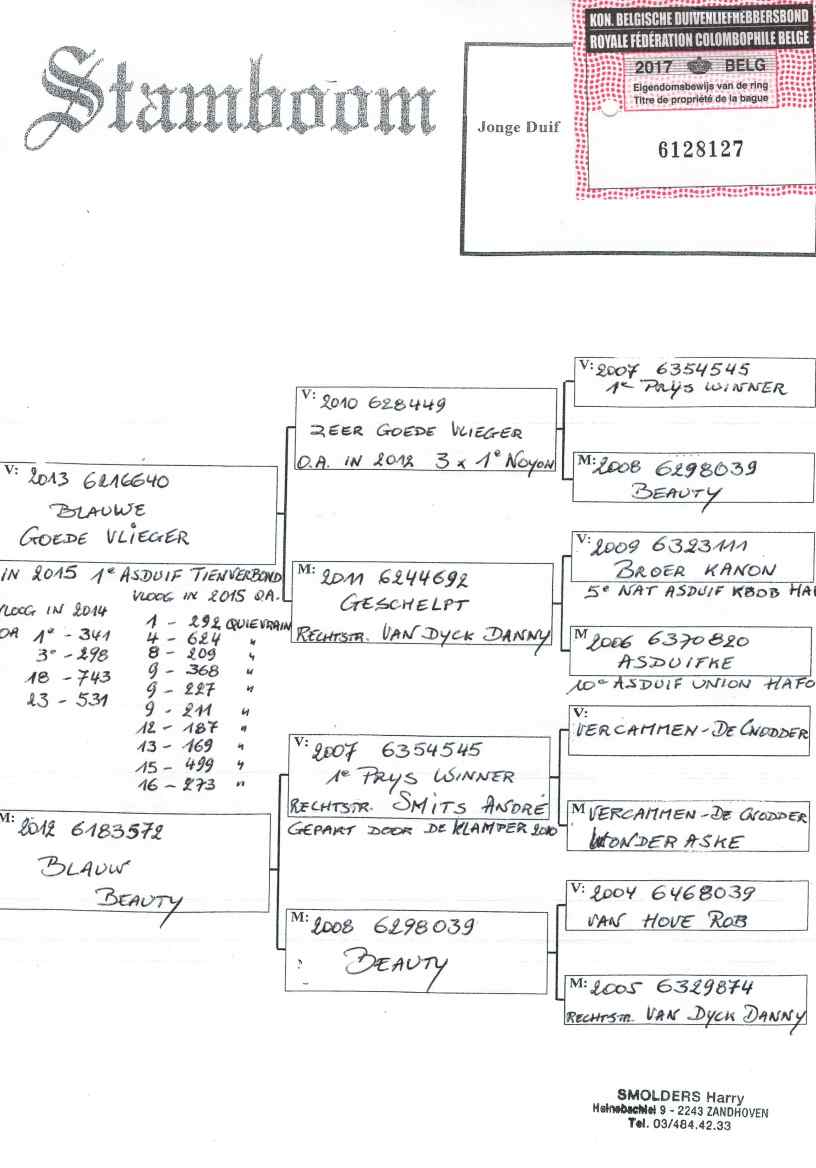 Stamboom
Jonge Duif
KON. BELGISCHE DUIVENLIEFHEBBERSBOND
ROYALE FÉDÉRATION COLOMBOPHILE BELGE
2017 BELG
Eigendomsbewijs van de ring
Titre de propriété de la bague
6128127
V: 2013 6216640
BLAUWE
GOEDE VLIEGER
IN 2015 1e ASDUIF TIENVERBOND
VLOOG IN 2014
OA 1e - 341
3e - 298
18 - 743
23 - 531
VLOOG IN 2015 OA.
1 - 292 QUIEVRAIN
4 - 624 "
8 - 209 "
9 - 368 "
9 - 227 "
9 - 211 "
12 - 187 "
13 - 169 "
15 - 499 "
16 - 273 "
M: 2012 6183572
BLAUW
BEAUTY
V: 2010 628449
ZEER GOEDE VLIEGER
O.A. IN 2012 3 x 1e NOYON
M: 2011 6244692
GESCHELPT
RECHTSTR. VAN DYCK DANNY
V: 2007 6354545
1e PRYS WINNER
RECHTSTR. SMITS ANDRÉ
GEPAKT DOOR DE KLAMPER 2010
M: 2008 6298039
BEAUTY
V: 2007 6354545
1e PRYS WINNER
M: 2008 6298039
BEAUTY
V: 2009 6323111
BROER KANON
5e NAT ASDUIF KBDB HAL
M 2006 6370820
ASDUIFKE
10e ASDUIF UNION HAFO
V:
VERCAMMEN - DE CNODDER
M VERCAMMEN - DE CNODDER
WONDER ASKE
V: 2004 6468039
VAN HOVE ROB
M: 2005 6329874
RECHTSTR. VAN DYCK DANNY
SMOLDERS Harry
9 - 2243 ZANDHOVEN
Tel. 03/484.42.33